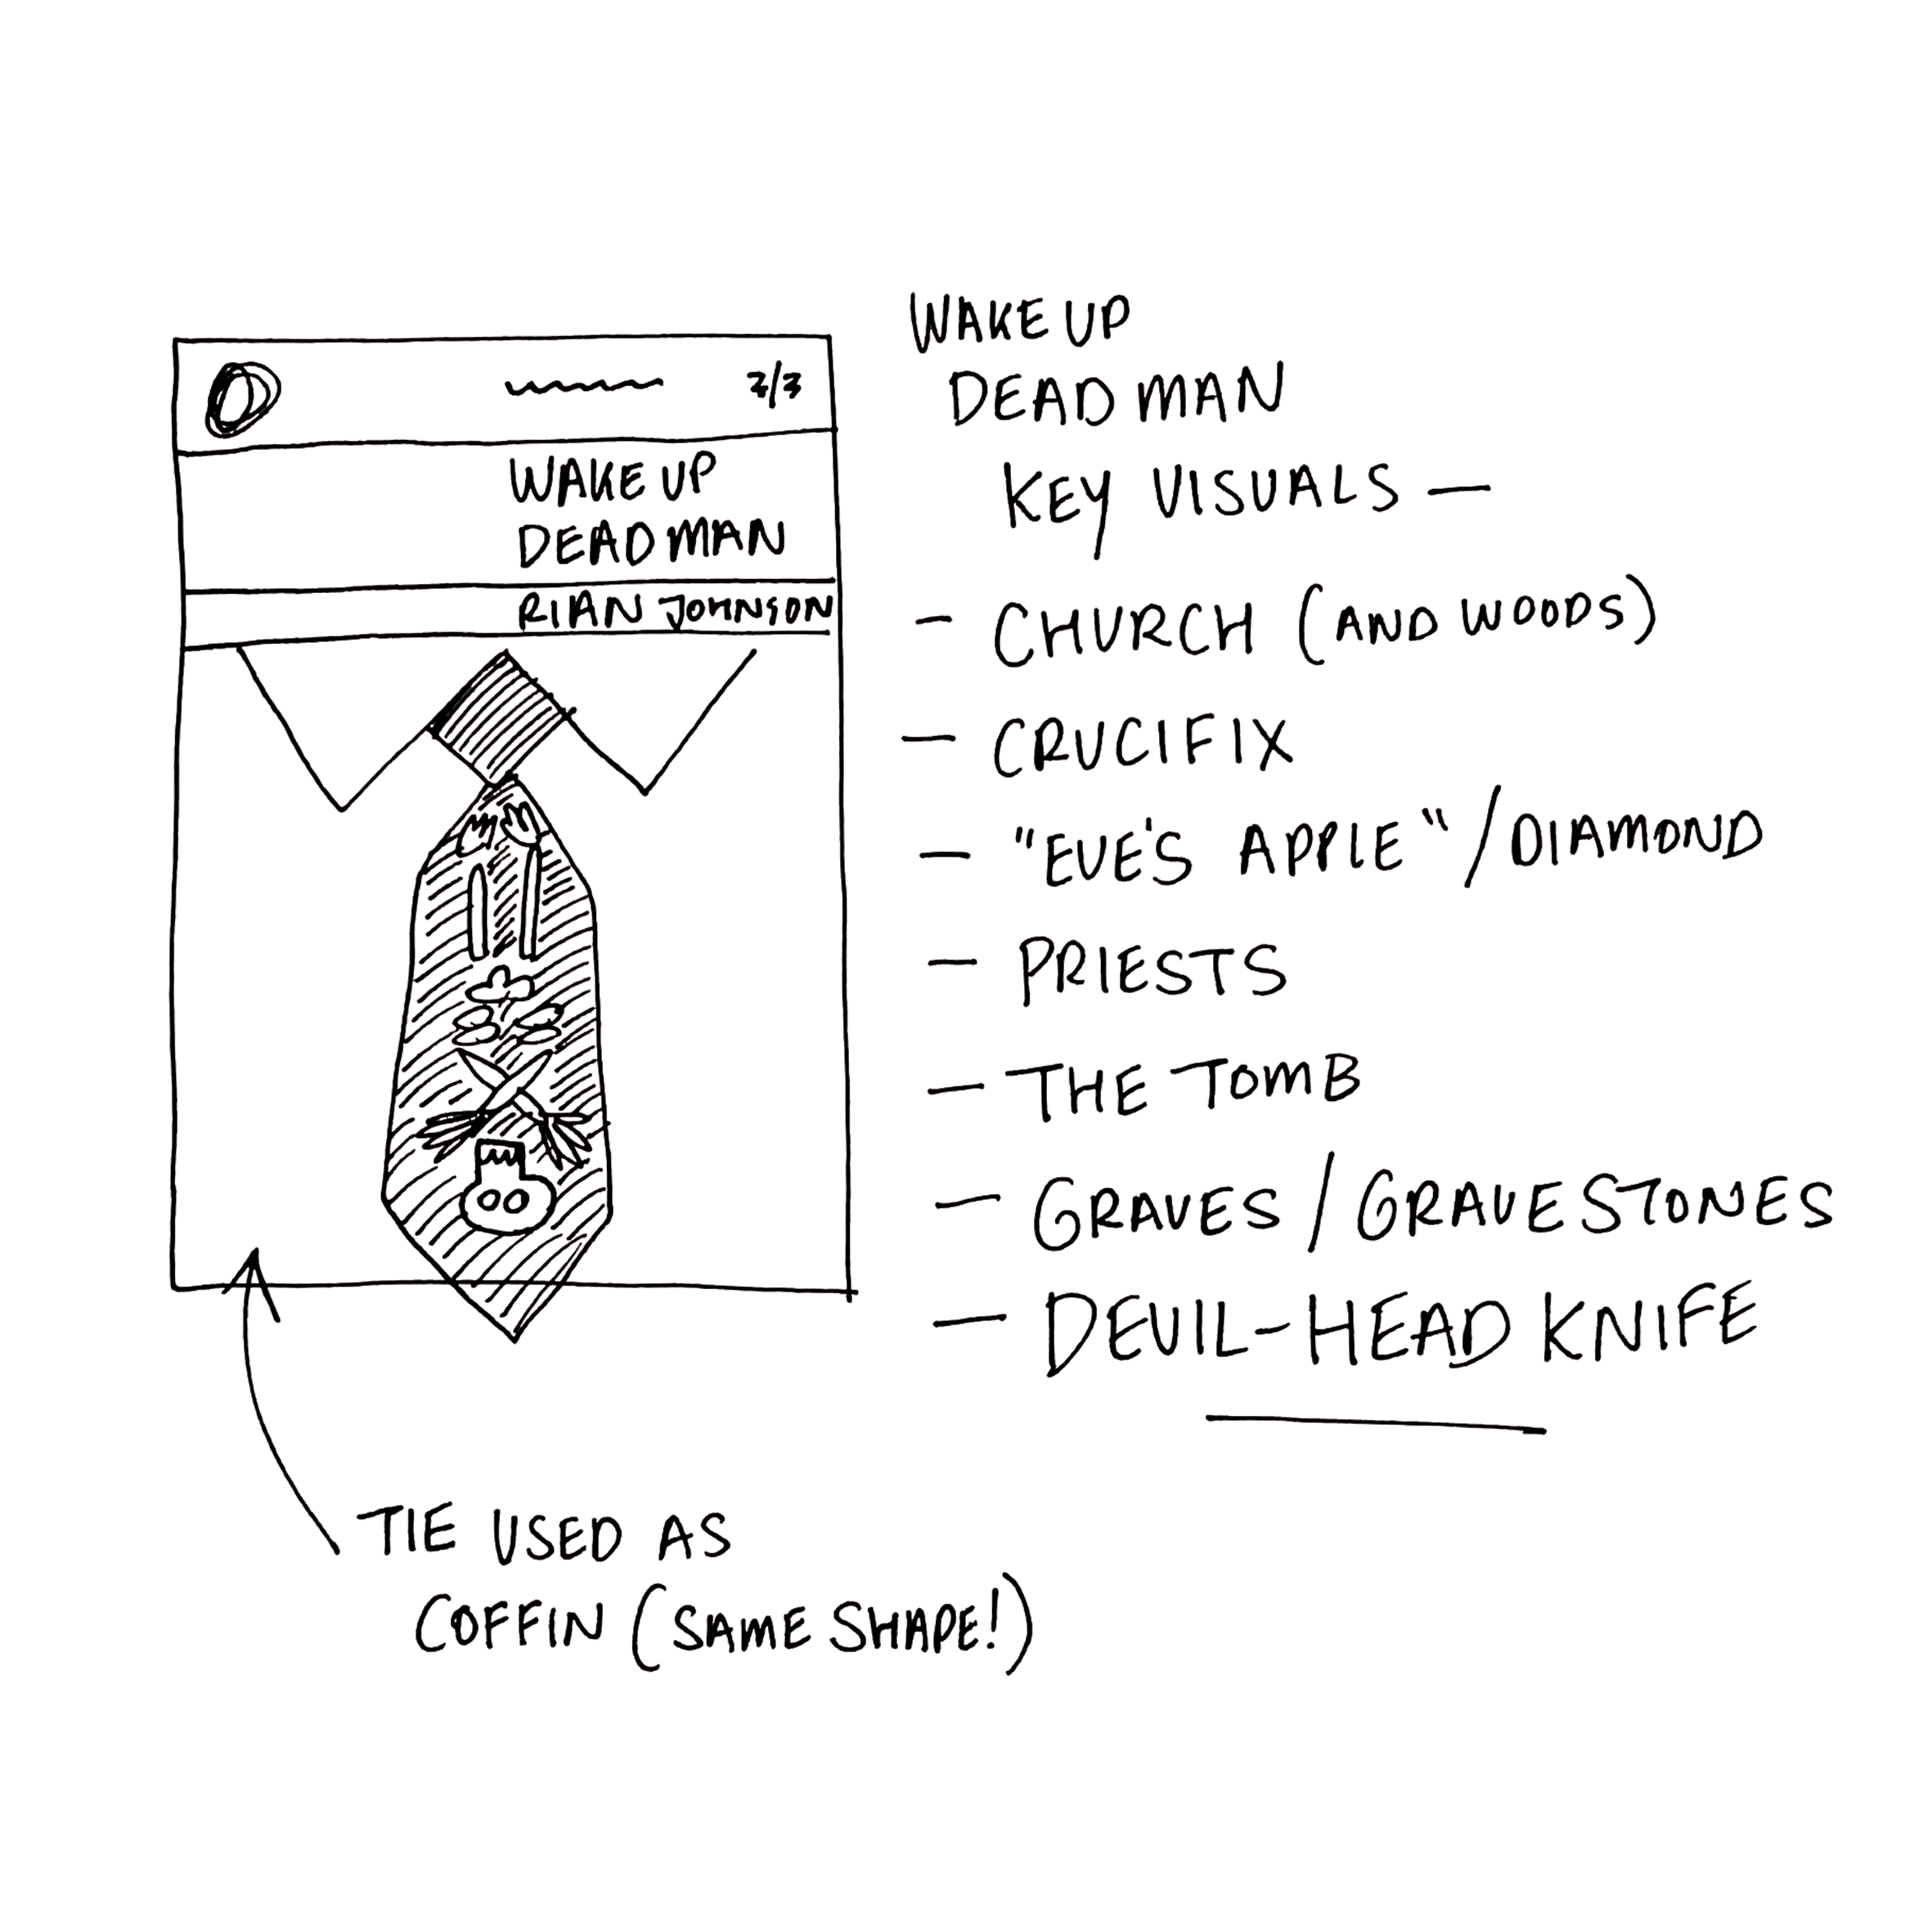 3/3
WAKE UP
DEAD MAN
RIAN JOHNSON
WAKE UP
DEAD MAN
KEY VISUALS —
– CHURCH (AND WOODS)
– CRUCIFIX
– "EVE'S APPLE"/DIAMOND
– PRIESTS
– THE TOMB
– GRAVES/GRAVESTONES
– DEVIL-HEAD KNIFE
TIE USED AS
COFFIN (SAME SHAPE!)